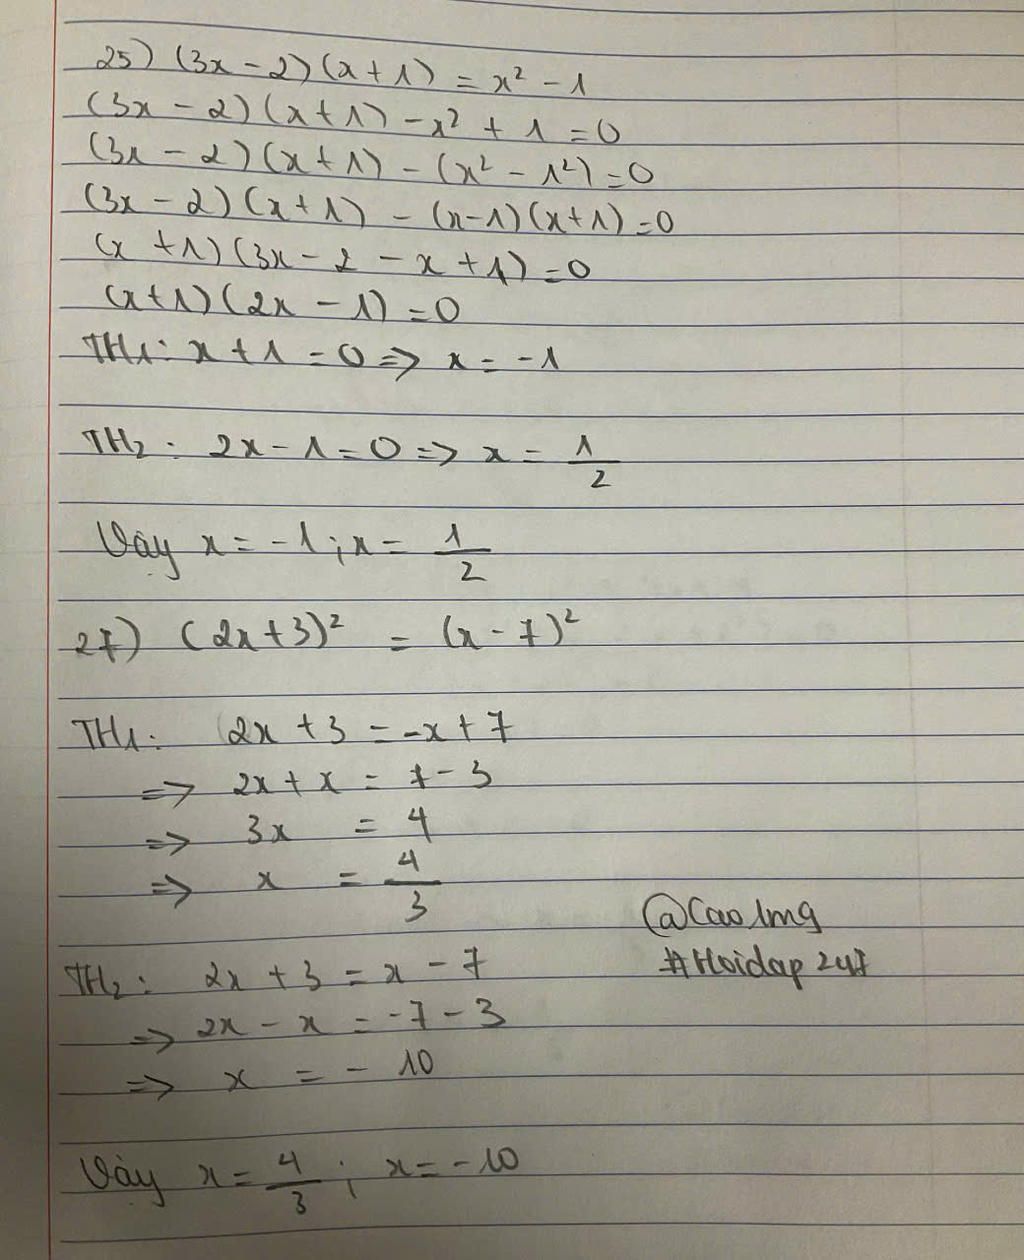 25) (3x - 2)(x + 1) = x² - 1
(3x - 2)(x + 1) - x² + 1 = 0
(3x - 2)(x + 1) - (x² - 1²) = 0
(3x - 2)(x + 1) - (x - 1)(x + 1) = 0
(x + 1)(3x - 2 - x + 1) = 0
(x + 1)(2x - 1) = 0
TH1: x + 1 = 0 => x = -1
TH2: 2x - 1 = 0 => x = 1/2
Vậy x = -1; x = 1/2
27) (2x + 3)² = (x - 7)²
TH1: 2x + 3 = -x + 7
=> 2x + x = 7 - 3
=> 3x = 4
=> x = 4/3
@Cao1mg
#Hoidap247
TH2: 2x + 3 = x - 7
=> 2x - x = -7 - 3
=> x = -10
Vậy x = 4/3; x = -10